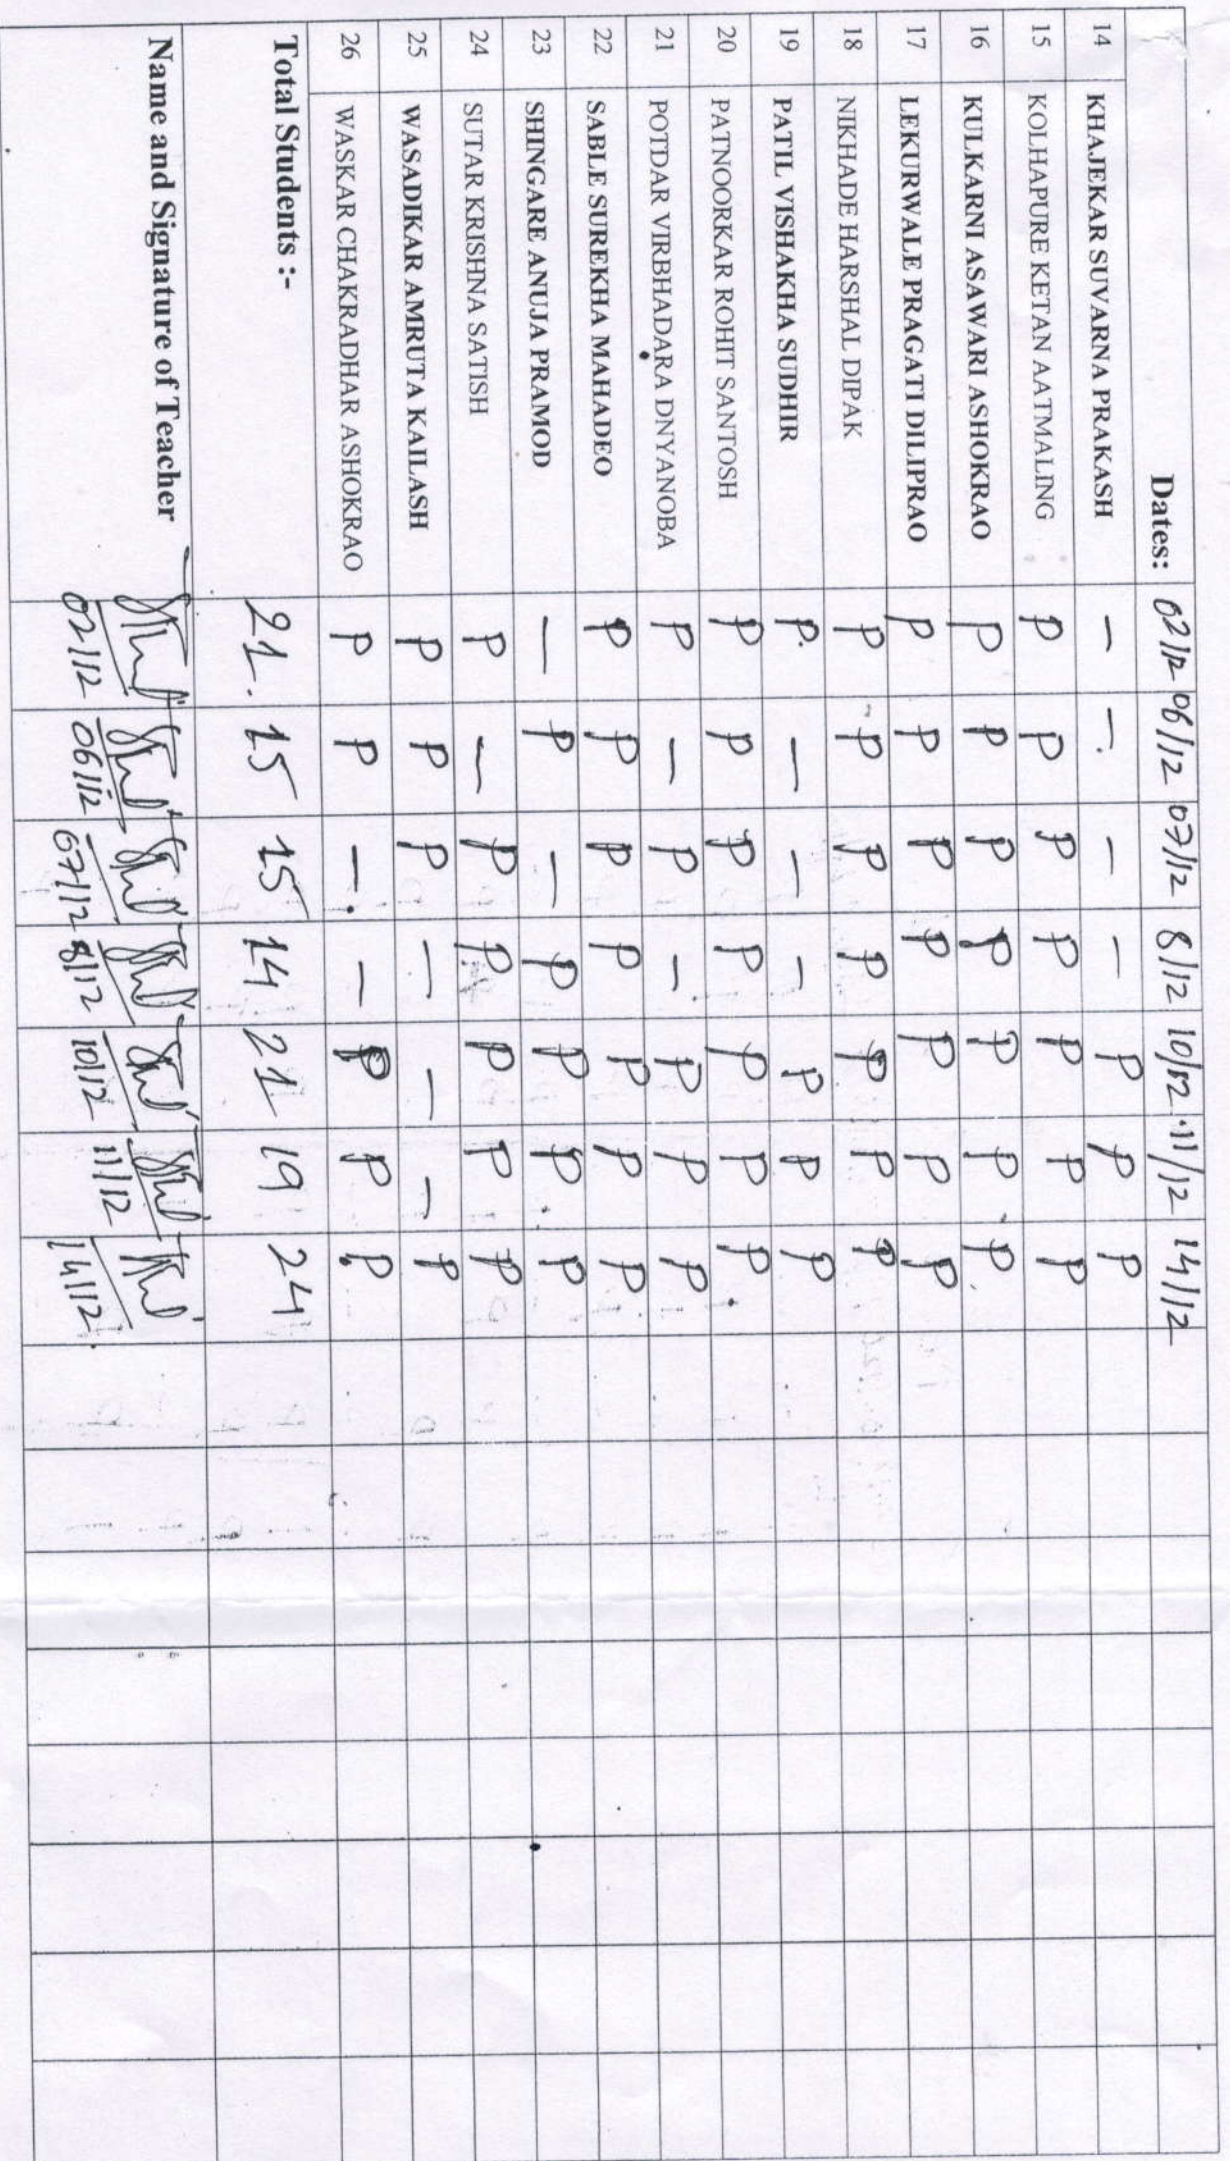 Dates: 02/12 06/12 07/12 8/12 10/12 11/12 14/12
14 KHAJEKAR SUVARNA PRAKASH — — — — P P P
15 KOLHAPURE KETAN AATMALING P P P P P P P
16 KULKARNI ASAWARI ASHOKRAO P P P P P P P
17 LEKURWALE PRAGATI DILIPRAO P P P P P P P
18 NIKHADE HARSHAL DIPAK P P P P P P P
19 PATIL VISHAKHA SUDHIR P. — — — P P P
20 PATNOORKAR ROHIT SANTOSH P P P P P P P
21 POTDAR VIRBHADARA DNYANOBA P — P — P P P
22 SABLE SUREKHA MAHADEO P P P P P P P
23 SHINGARE ANUJA PRAMOD — P — P P P P
24 SUTAR KRISHNA SATISH P — P P P P P
25 WASADIKAR AMRUTA KAILASH P P P — — — P
26 WASKAR CHAKRADHAR ASHOKRAO P P — — P P P
Total Students :- 21. 15 15 14 21 19 24
Name and Signature of Teacher
02/12 06/12 07/12 8/12 10/12 11/12 14/12